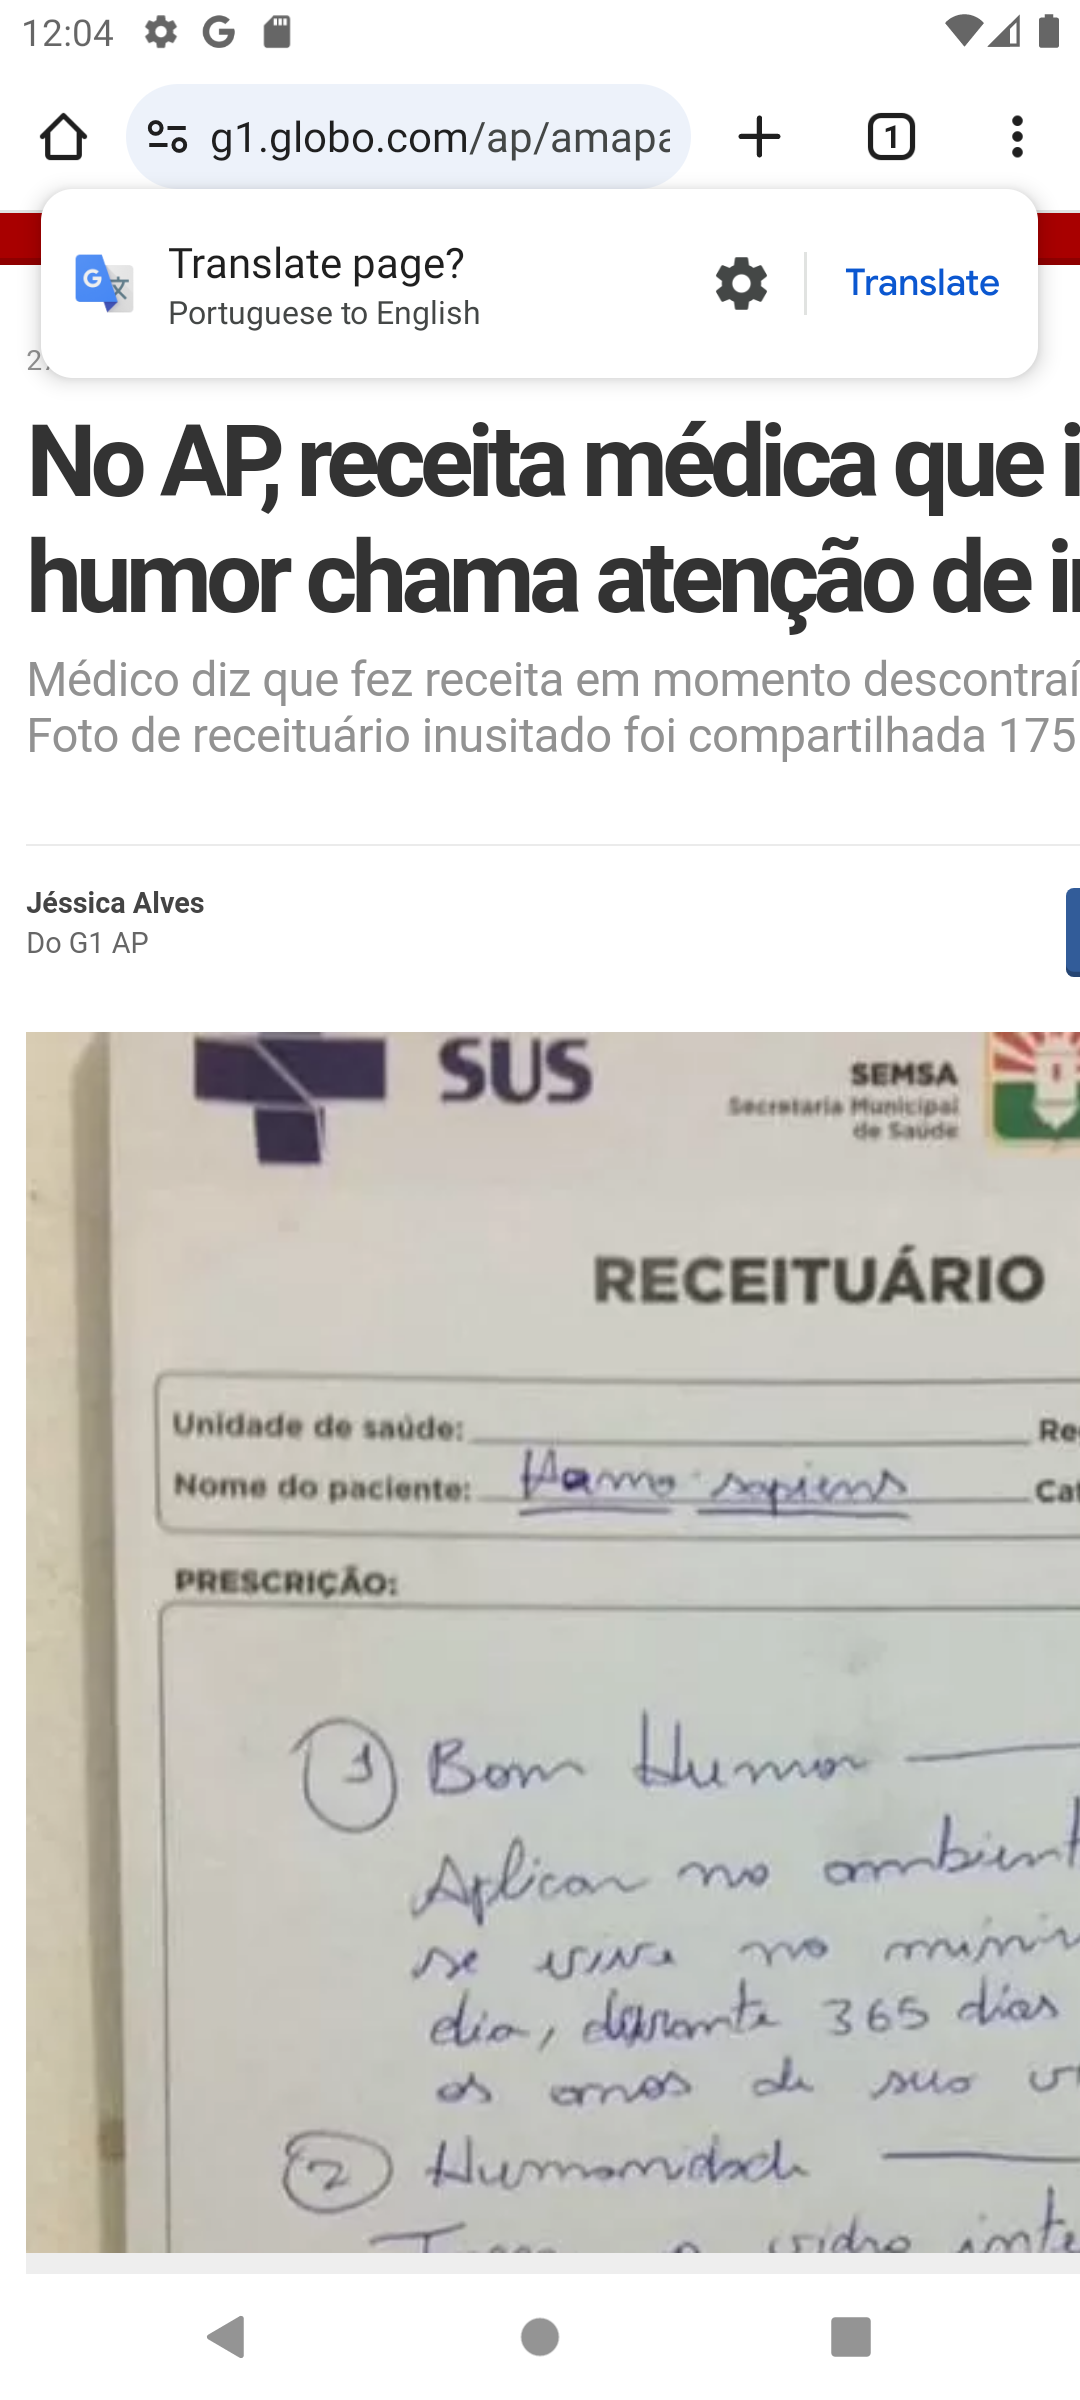 12:04
g1.globo.com/ap/amapa
1
Translate page?
Portuguese to English
Translate
No AP, receita médica que i
humor chama atenção de i
Médico diz que fez receita em momento descontraí
Foto de receituário inusitado foi compartilhada 175
Jéssica Alves
Do G1 AP
SUS
SEMSA
Secretaria Municipal
de Saúde
RECEITUÁRIO
Unidade de saúde: Re
Nome do paciente: Homo sapiens Cat
PRESCRIÇÃO:
1 Bom Humor
Aplicar no ambient
se vive no mínim
dia, durante 365 dias
os anos de sua v
2 Humanidade
vidro inte